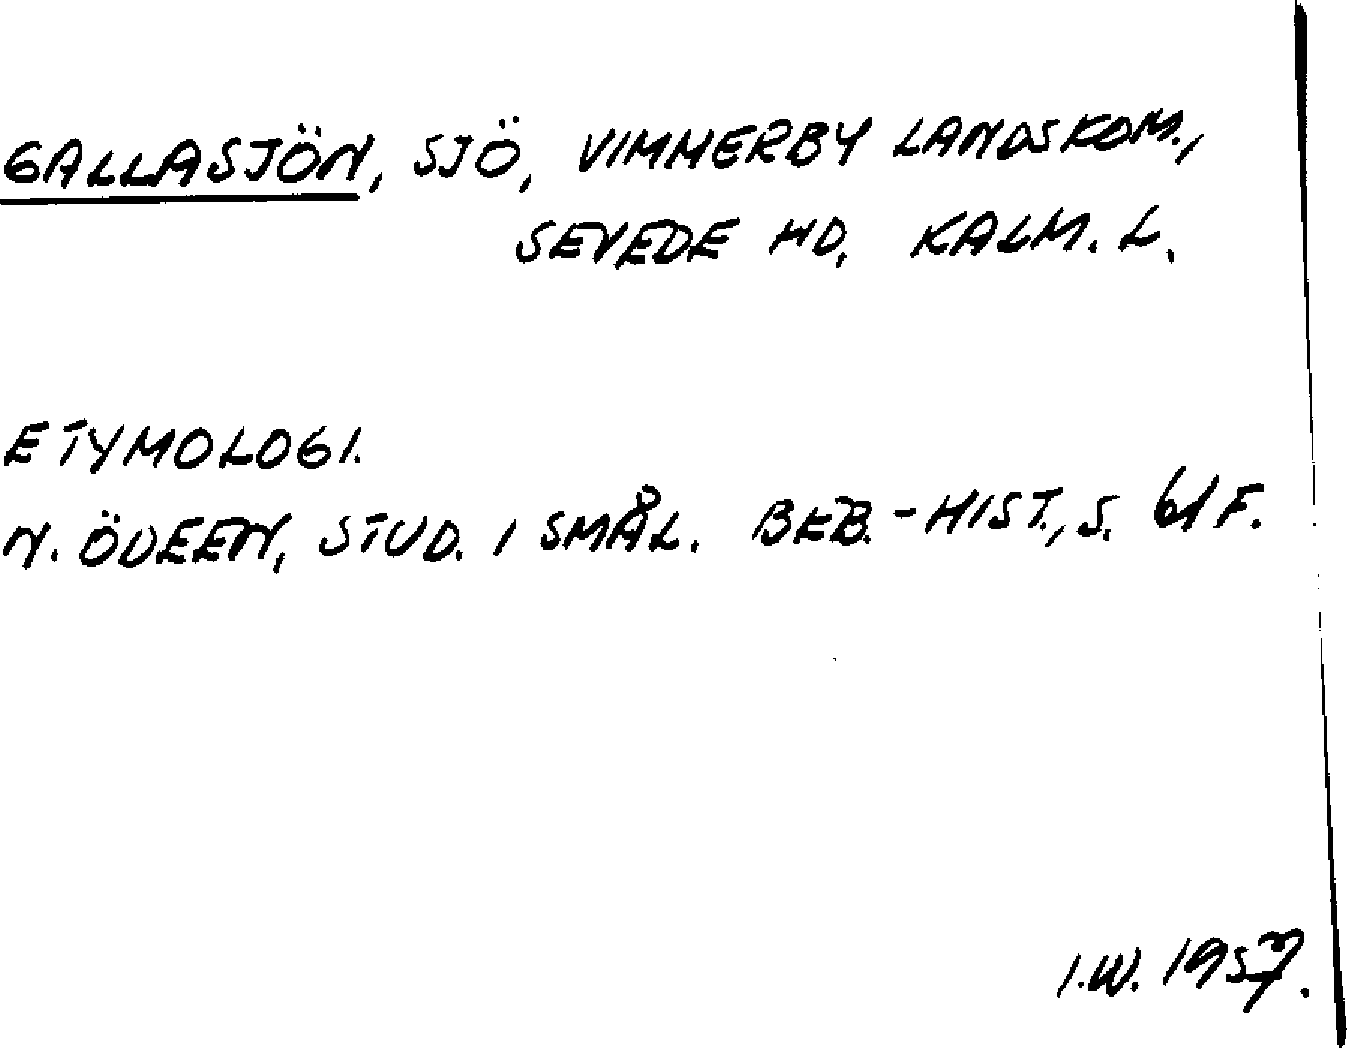 GALLASJÖN, SJÖ, VIMMERBY LANDSKOM.,
SEVEDE HD, KALM. L.
ETYMOLOGI.
N. ÖDEEN, STUD. I SMÅL. BEB.-HIST., S. 61 F.
I.W. 1957.